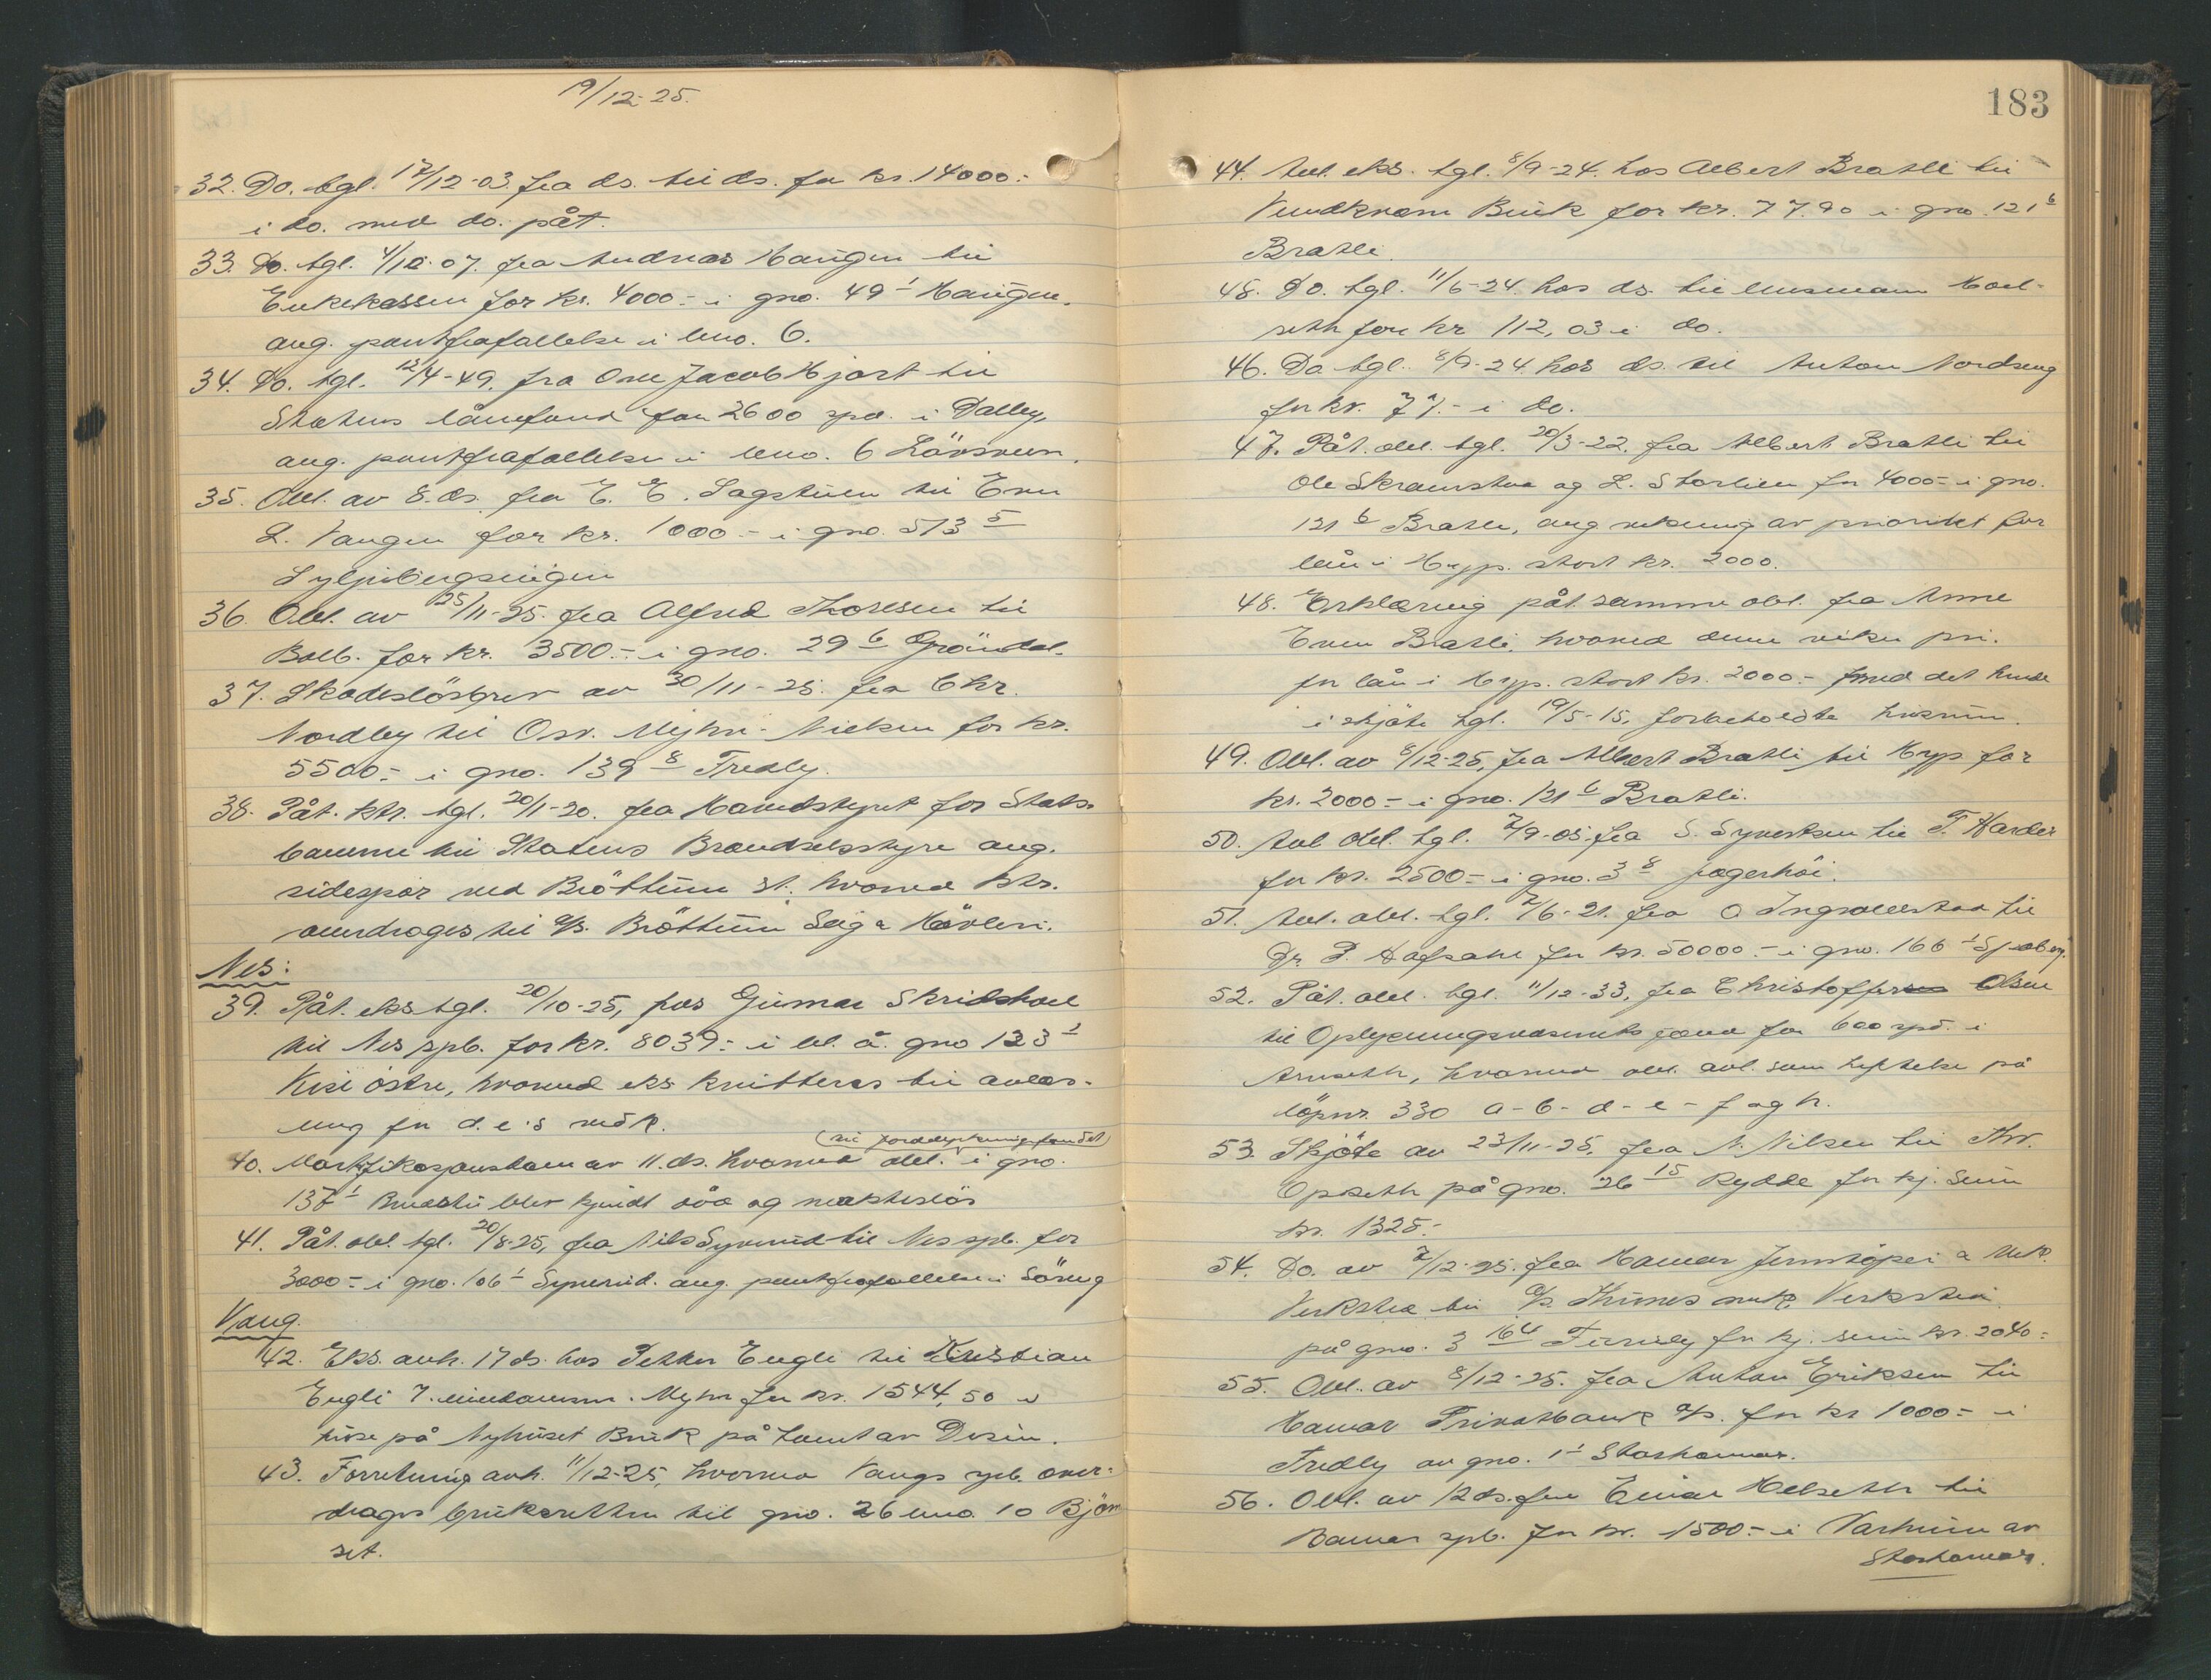 19/12-25.
32. Do. tgl. 17/12-03. fra ds. til ds. for kr. 14000.-
i do. med do. påt.
33. Do. tgl. 4/12-07. fra Andreas Haugen til
Enkekassen for kr. 4000.- i gno. 49¹ Haugen.
ang. pantefrafallelse i bno. 6.
34. Do. tgl. 12/4-49. fra One Jacob Hjort til
Statens lånefond for 2600 spd. i Dalby,
ang. pantfrafallelse i bno. 6 Lövsveen.
35. Obl. av 8. ds. fra E. E. Sagstuen til Even
L. Vangen for kr. 1000.- i gno. 513 5
36. Obl. av 25/11-25. fra Alfred Thoresen til
Bolb. for kr. 3500.- i gno. 29 6 Gröndal.
37. Skadeslösbrev av 30/11-25. fra Chr.
Nordby til Osv. Myhre-Nielsen for kr.
5500.- i gno. 139 8 Fredly.
38. Påt. ktr. tgl. 20/11-20. fra Hovedstyret for Stats-
banerne til Statens Brændselsstyre ang.
sidespor ved Bröttum st. hvorved ktr.
overdrages til A/S. Bröttum Sag & Hövleri.
Nes:
39. Påt. eks tgl. 20/10-25, hos Gunnar Skridshol
til Nes spb. for kr. 8039.- i bl. a. gno 123 2
Kise östre, hvorved eks kvitteres til avlæs-
ning for d. e's vedk.
(til jorddyrkningsfondet)
40. Mortifikasjonsdom av 11. ds. hvorved obl. i gno.
137 1 blev kjendt död og makteslös
41. Påt. obl. tgl. 20/8-25, fra Nils Syverud til Nes spb. for
3000.- i gno. 106 1 Syverud. ang. pantfrafallelse i Söreng
Vang.
42. Eks. avh. 17 ds. hos Petter Engli til Kristian
Engli v. Myhre for kr. 1544,50 i
huse på Nyhuset Bruk på tomt av Disen.
43. Forretning avh. 11/12-25, hvorved Vangs spb. over-
drages bruksretten til gno. 26 bno. 10 Björn
set.
183
44. Avl. eks. tgl. 8/9-24. hos Albert Bratli til
Bruk for kr. 77.90 i gno. 121 6
Bratli.
45. Do. tgl. 11/6-24. hos ds. til Hoel-
seth for kr 112,03 i do.
46. Do tgl. 8/9-24 hos ds. til Anton Nordseng
for kr. 71.- i do.
47. Påt. obl. tgl. 20/3-22. fra Albert Bratli til
Ole Skramstad og L. Storlien for 4000.- i gno.
121 6 Bratli, ang vikning av prioritet for
lån i Hyp. stort kr. 2000.
48. Erklæring påt. samme obl. fra Anne
Even Bratli, hvorved denne viker pri.
for lån i Hyp. stort kr. 2000.- med det hende
i skjöte tgl. 19/5-15, forbeholdte husrum.
49. Obl. av 8/12-25, fra Albert Bratli til Hyp for
kr. 2000.- i gno. 121 6 Bratli.
50. Avl obl. tgl. 7/9-05. fra S. Syvertsen til T. Harder
for kr. 2500.- i gno. 3 8 Jægerhöi.
51. Avl. obl. tgl. 7/6-21. fra O Ingvoldstad til
Dr. P. Aafsahl for kr. 50000.- i gno. 166 1
52. Påt. obl. tgl. 11/12-33, fra Christoffer Olsen
til Oplysningsvæsenets fond for 600 spd. i
Arnseth, hvorved obl. avl. som heftelse på
löpnr. 330 a-b-d-e-f og h.
53. Skjöte av 23/11-25, fra N. Nilsen til Thv.
Opseth på gno. 26 15 Rydde for kj. sum
kr. 1325.-
54. Do. av 7/12-25. fra Hamar Jernstöperi & Mek.
Verksted til A/S. Thunes mek. Verksted
på gno. 3 164 for kj. sum kr. 2040.-
55. Obl. av 8/12-25. fra Anton Eriksen til
Hamar Privatbank A/S. for kr 1000.- i
Fredly av gno. 1 1 Storhamar.
56. Obl. av 12 ds. fra Einar Helseth til
Hamar spb. for kr. 1500.- i Varheim av
Storhamar.